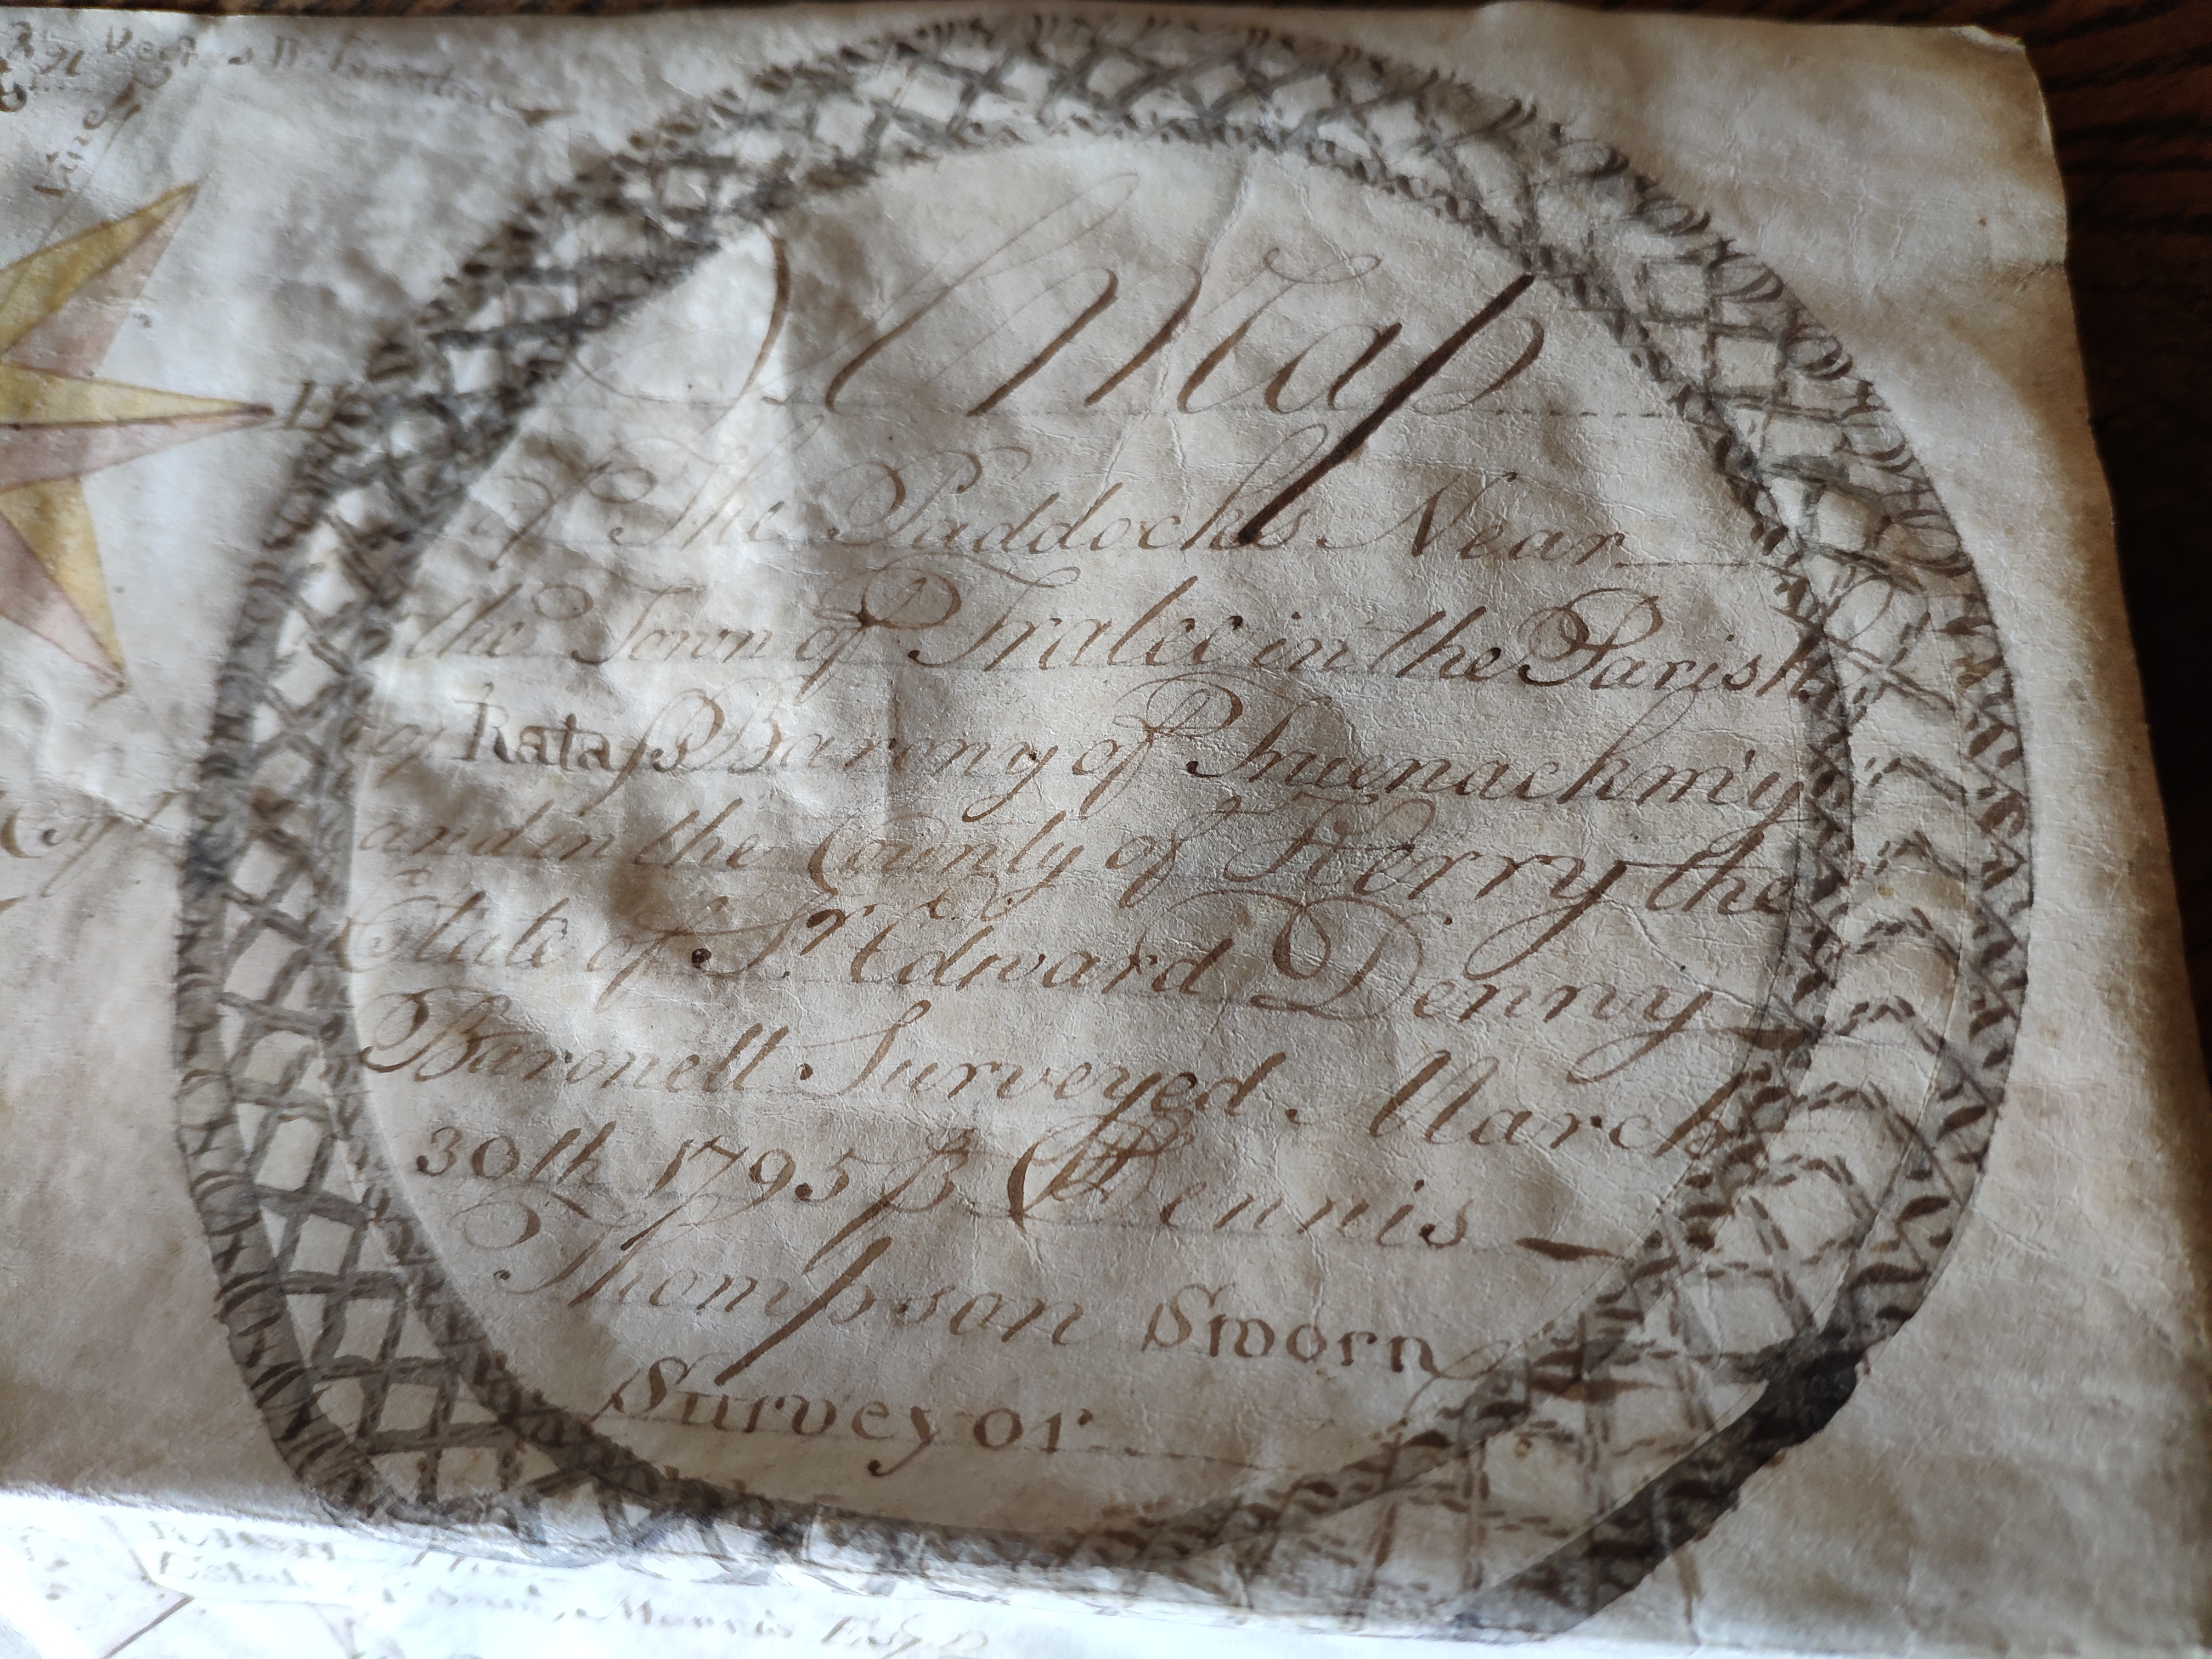 A Map
of The Paddocks Near
the Town of Tralee in the Parish
of Ratass Barony of
and in the County of Kerry the
Estate of Sr. Edward Denny
Baronett Surveyed March
30th 1795 Dennis
Thompson Sworn
Surveyor
Morris Esqr